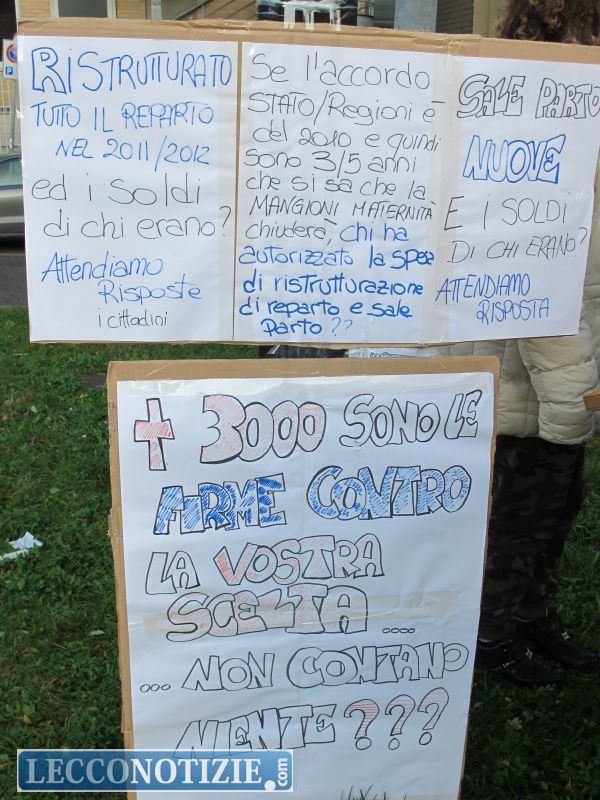 RISTRUTTURATO
TUTTO IL REPARTO
NEL 2011/2012
ed i soldi
di chi erano?
Attendiamo
Risposte
i cittadini
Se l'accordo
STATO/Regioni è
del 2010 e quindi
sono 3/5 anni
che si sà che la
MANGIONI MATERNITÀ
chiuderà, chi ha
autorizzato la spesa
di ristrutturazione
di reparto e sale
Parto ??
SALE PARTO
NUOVE
E i SOLDI
DI CHI ERANO?
ATTENDIAMO
RISPOSTA
+ 3000 SONO LE
FIRME CONTRO
LA VOSTRA
SCELTA ....
... NON CONTANO
NIENTE ???
LECCONOTIZIE.com